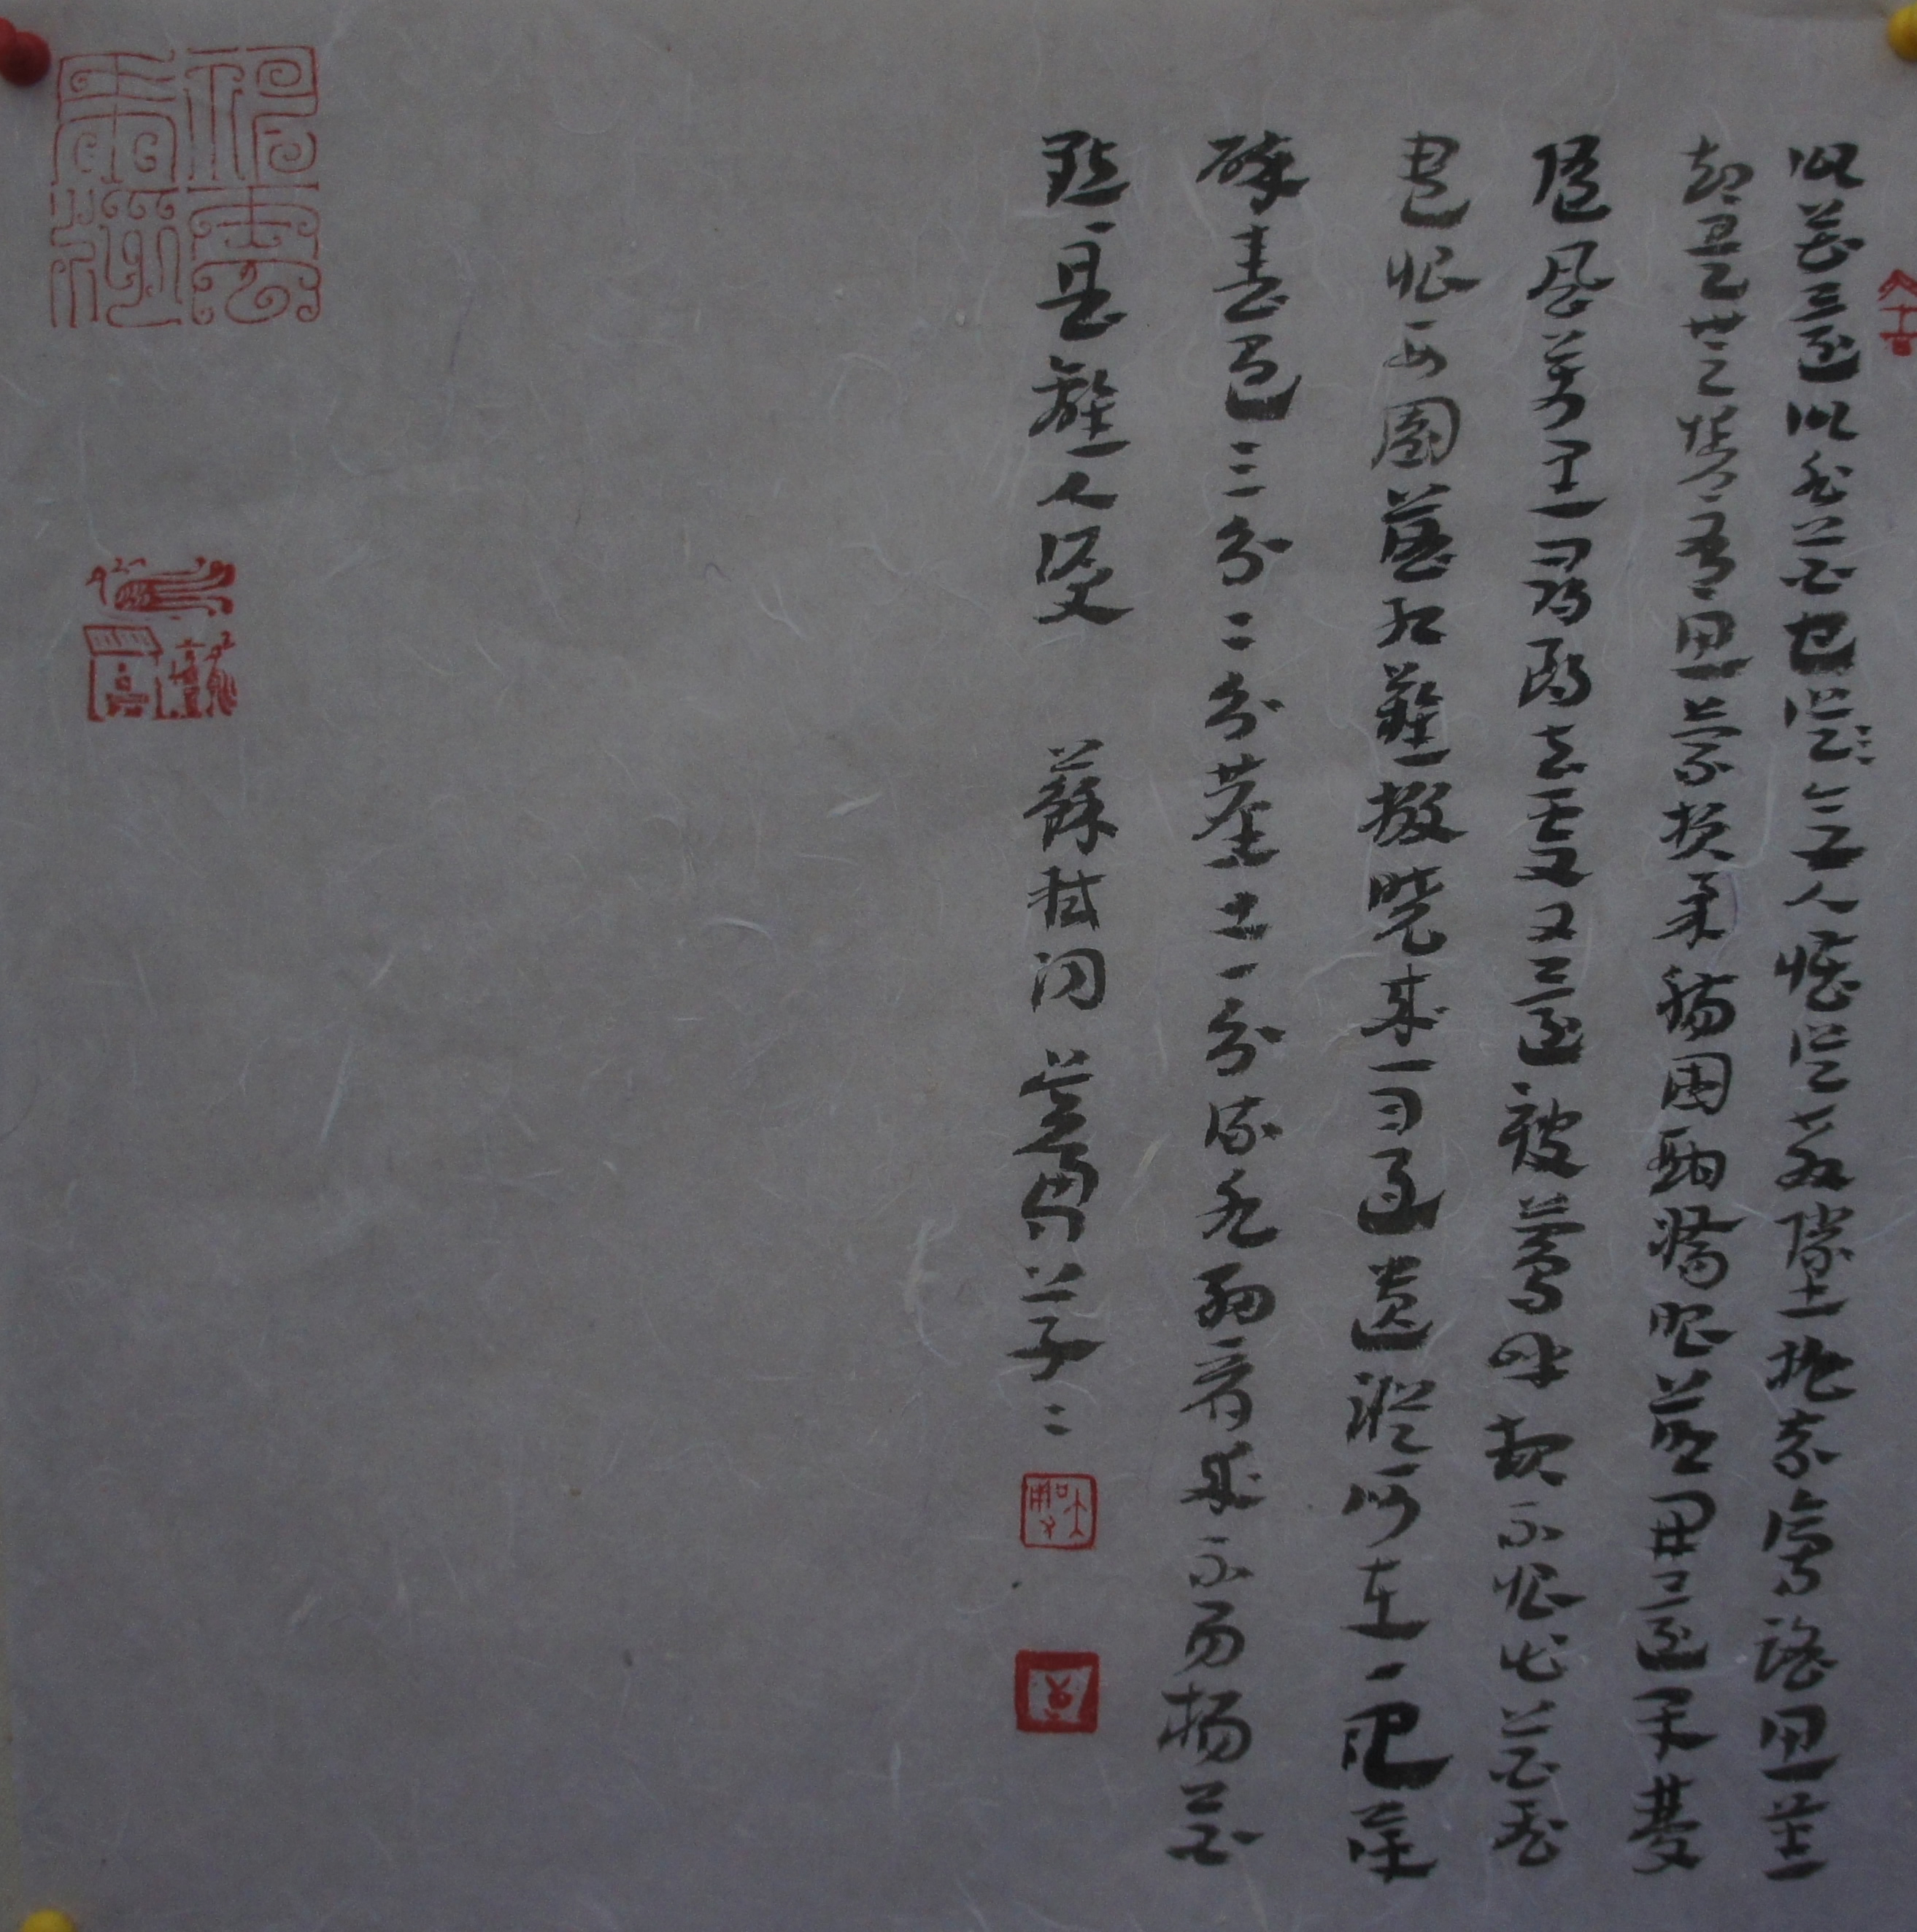 似花還似非花也從無人惜從教墜抛家傍路思量
却是無情有思縈損柔腸困酣嬌眼開還閉夢
隨風萬里尋郎去處又還被鶯呼起不恨此花飛
盡恨西園落紅難綴曉來雨過遺蹤何在一池萍
碎春色三分二分塵土一分流水細看來不是楊花
點點是離人淚 蘇軾詞